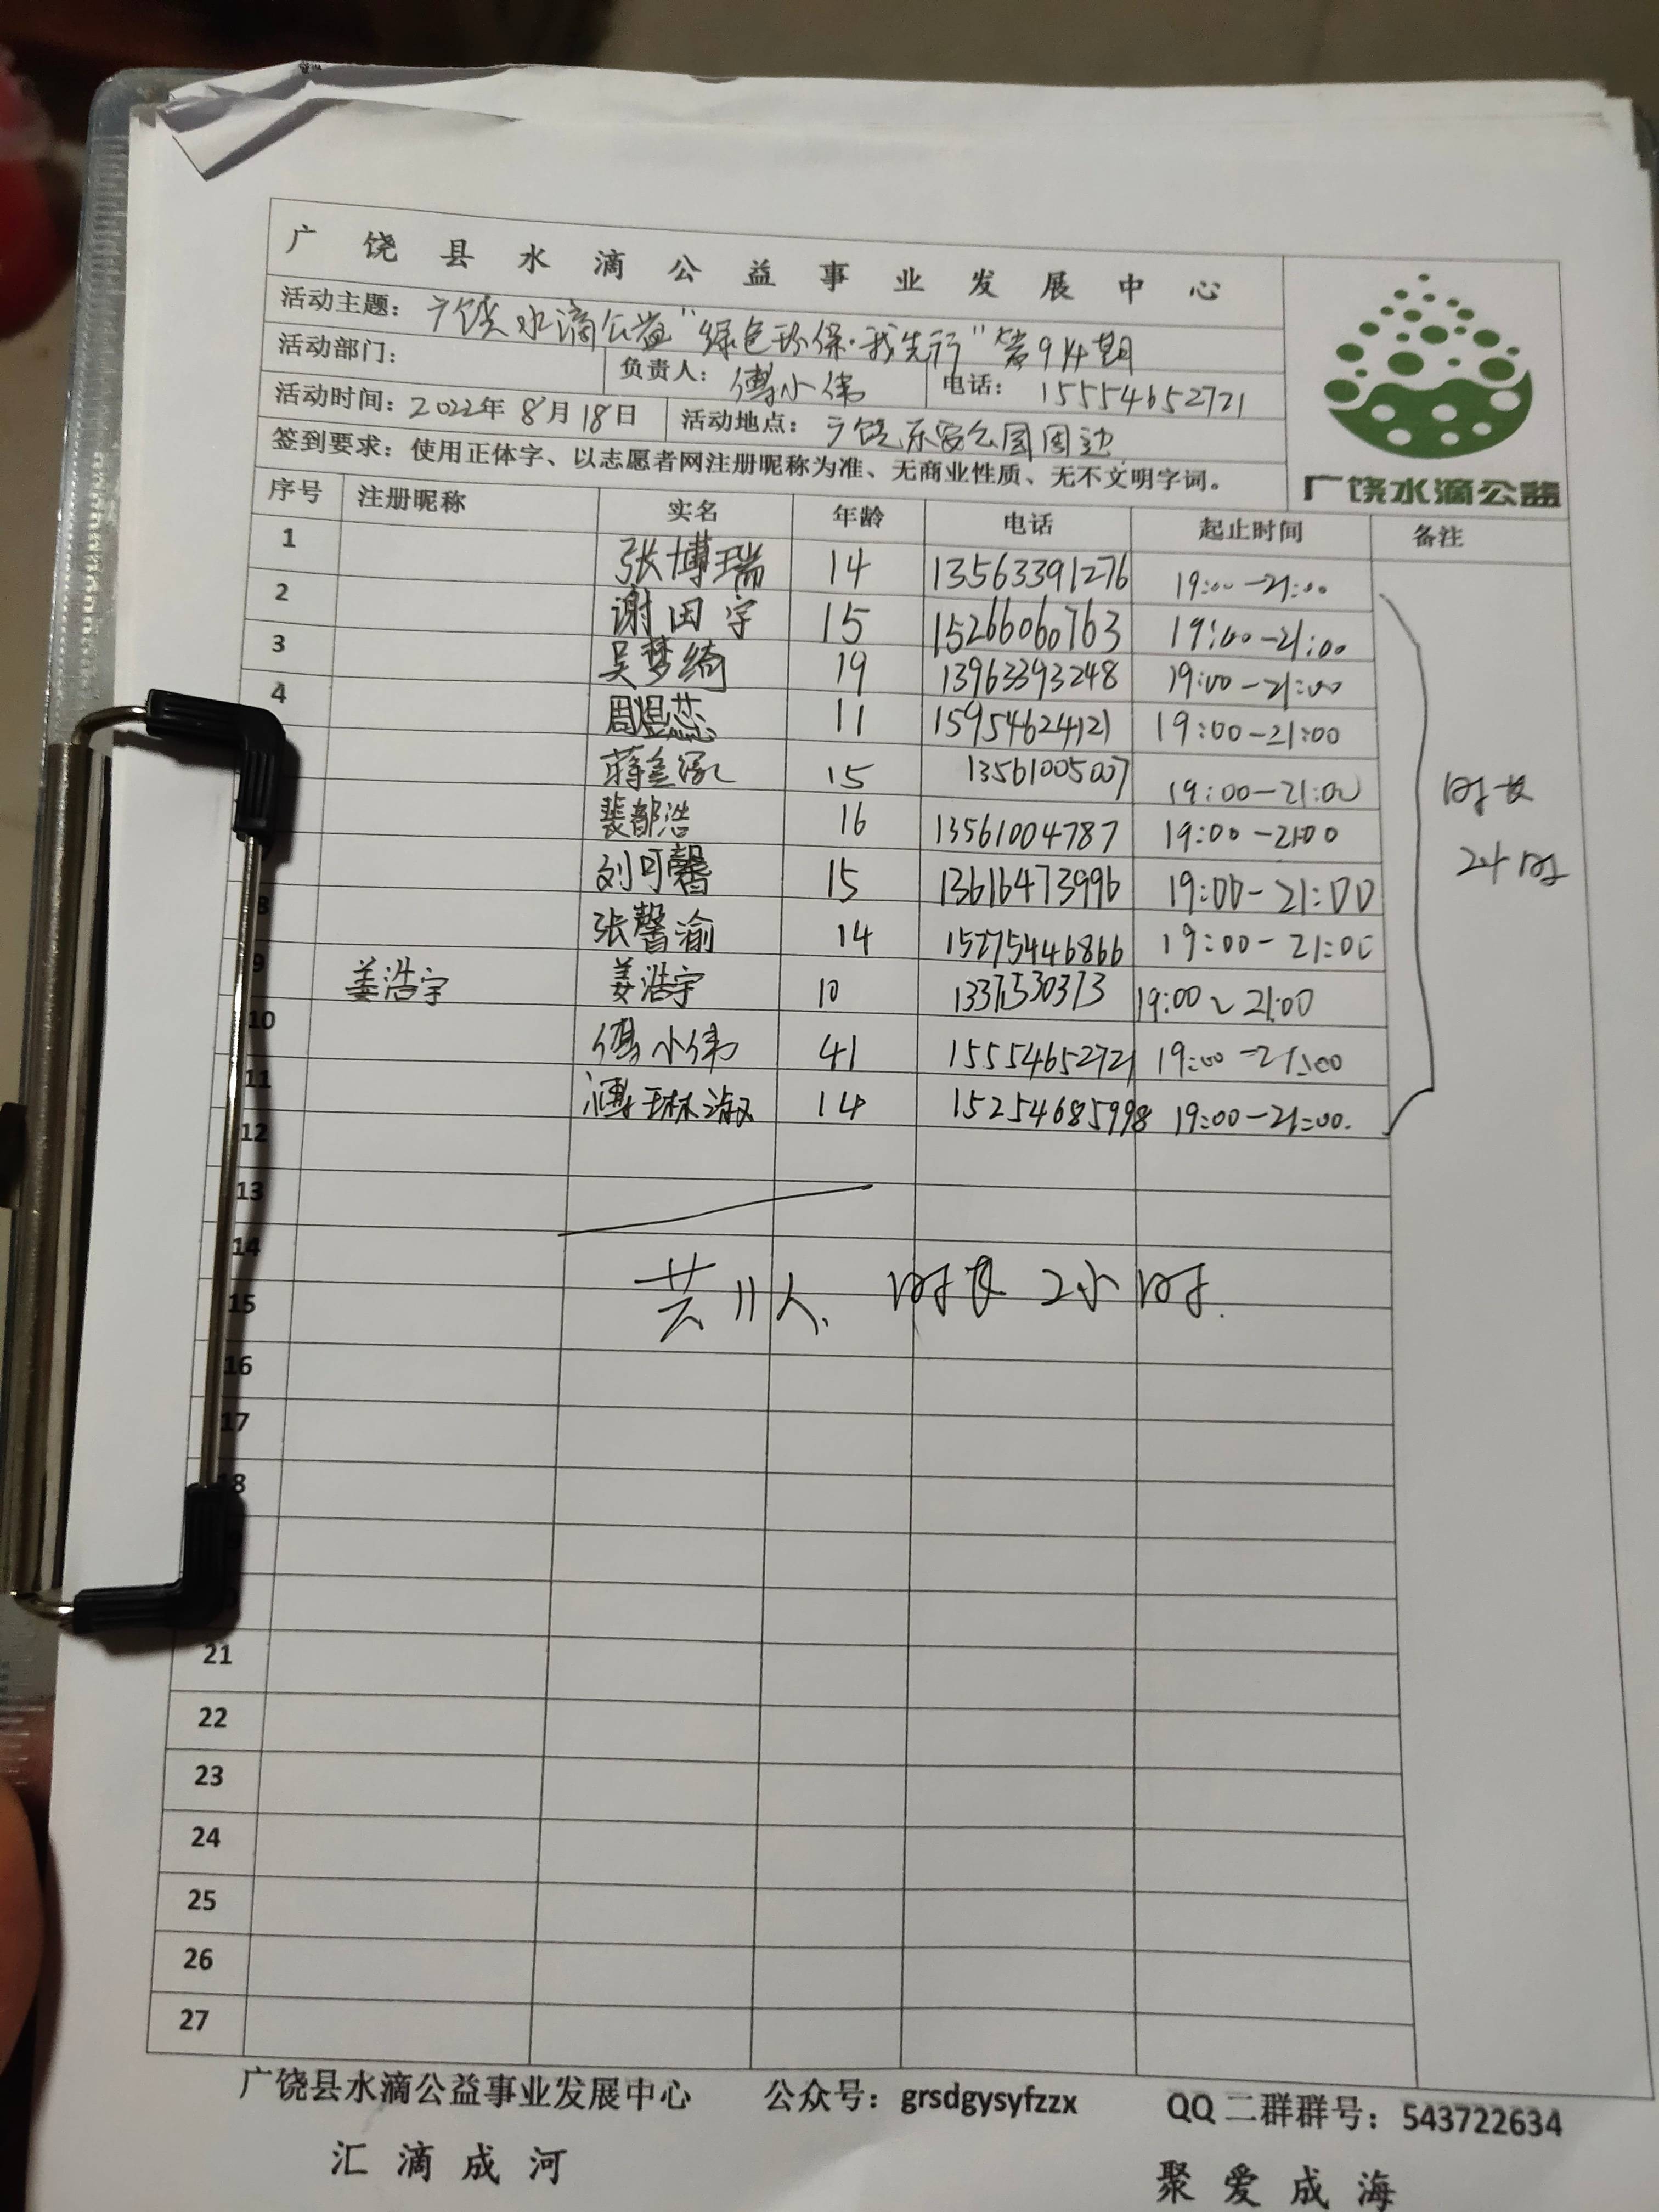 广饶县水滴公益事业发展中心
活动主题：广饶水滴公益"绿色环保·我先行"第914期
活动部门： 负责人：傅小伟 电话：15554652721
活动时间：2022年8月18日 活动地点：广饶乐安公园周边
签到要求：使用正体字、以志愿者网注册昵称为准、无商业性质、无不文明字词。
广饶水滴公益
序号 注册昵称 实名 年龄 电话 起止时间 备注
1 张博瑞 14 13563391276 19:00-21:00
2 谢田宇 15 15266060763 19:00-21:00
3 吴梦绮 19 13963393248 19:00-21:00
4 周煜蕊 11 15954624121 19:00-21:00
蒋 15 13561005007 19:00-21:00
裴都浩 16 13561004787 19:00-21:00
刘可馨 15 13616473996 19:00-21:00
8 张馨渝 14 15275446866 19:00-21:00
9 姜浩宇 姜浩宇 10 19:00~21:00
10 傅小伟 41 15554652721 19:00-21:00
11 傅琳淑 14 15254685998 19:00-21:00.
时长
2小时
12
13
14
共11人、时长2小时.
15
16
17
18
21
22
23
24
25
26
27
广饶县水滴公益事业发展中心 公众号：grsdgysyfzzx QQ二群群号：543722634
汇滴成河 聚爱成海